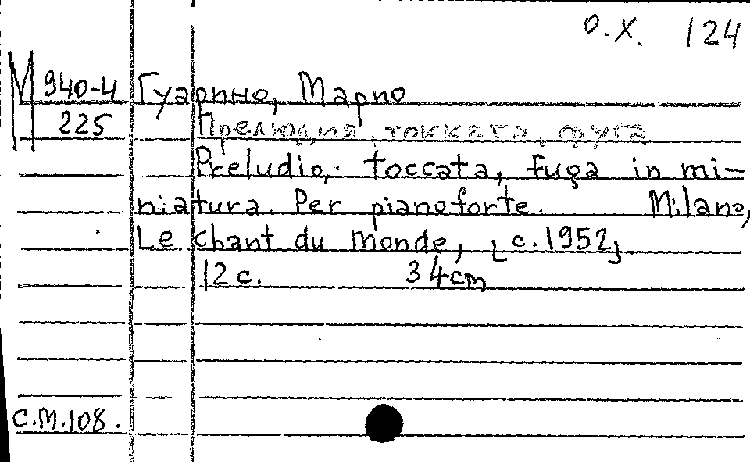 О.Х. 124
М 940-4 Гуарино, Марио
225 Прелюдия, токката, фуга
Preludio, toccata, fuga in mi-
niatura. Per pianoforte. Milano,
Le chant du monde, [c.1952].
12 с. 34cm
С.М.108.